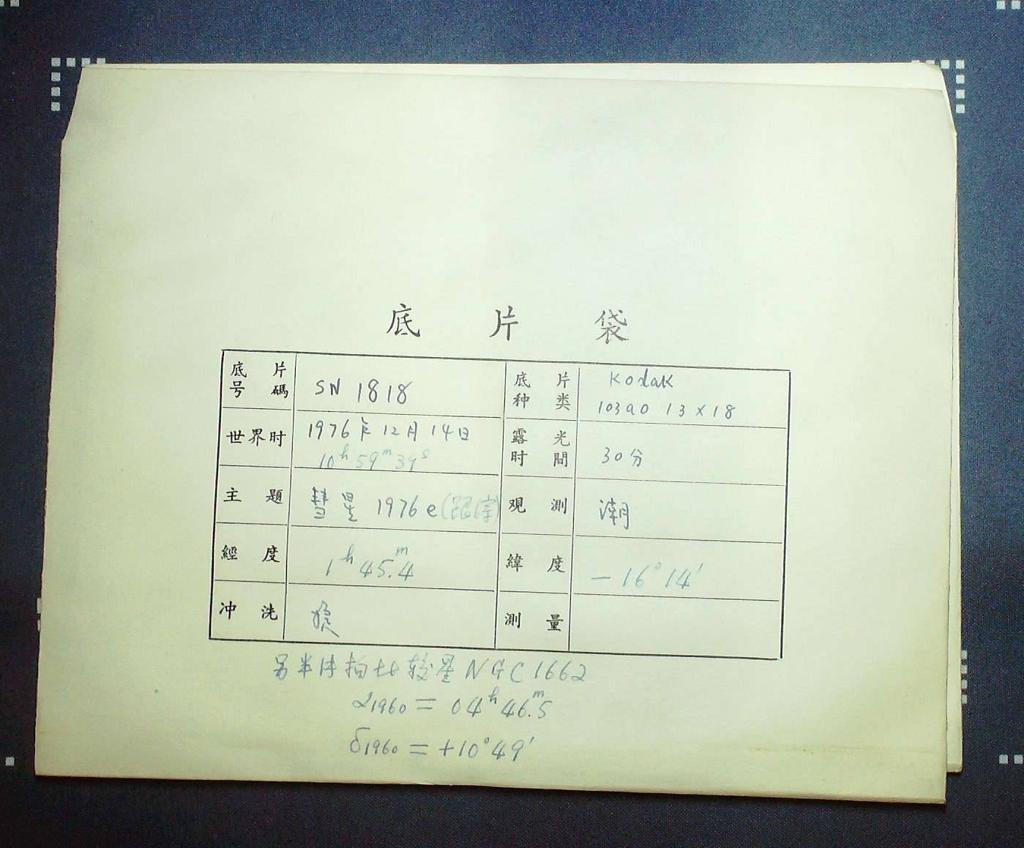 底 片 袋
底 片 号 碼 SN 1818 底 片 种 类 Kodak 103aO 13×18
世界时 1976年12月14日 10h59m39s 露 光 时 間 30分
主 題 彗星 1976e 观 測 潮
經 度 1h45.m4 緯 度 -16°14′
冲 洗 測 量
另半片拍比较星NGC1662
α1960 = 04h46.m5
δ1960 = +10°49′